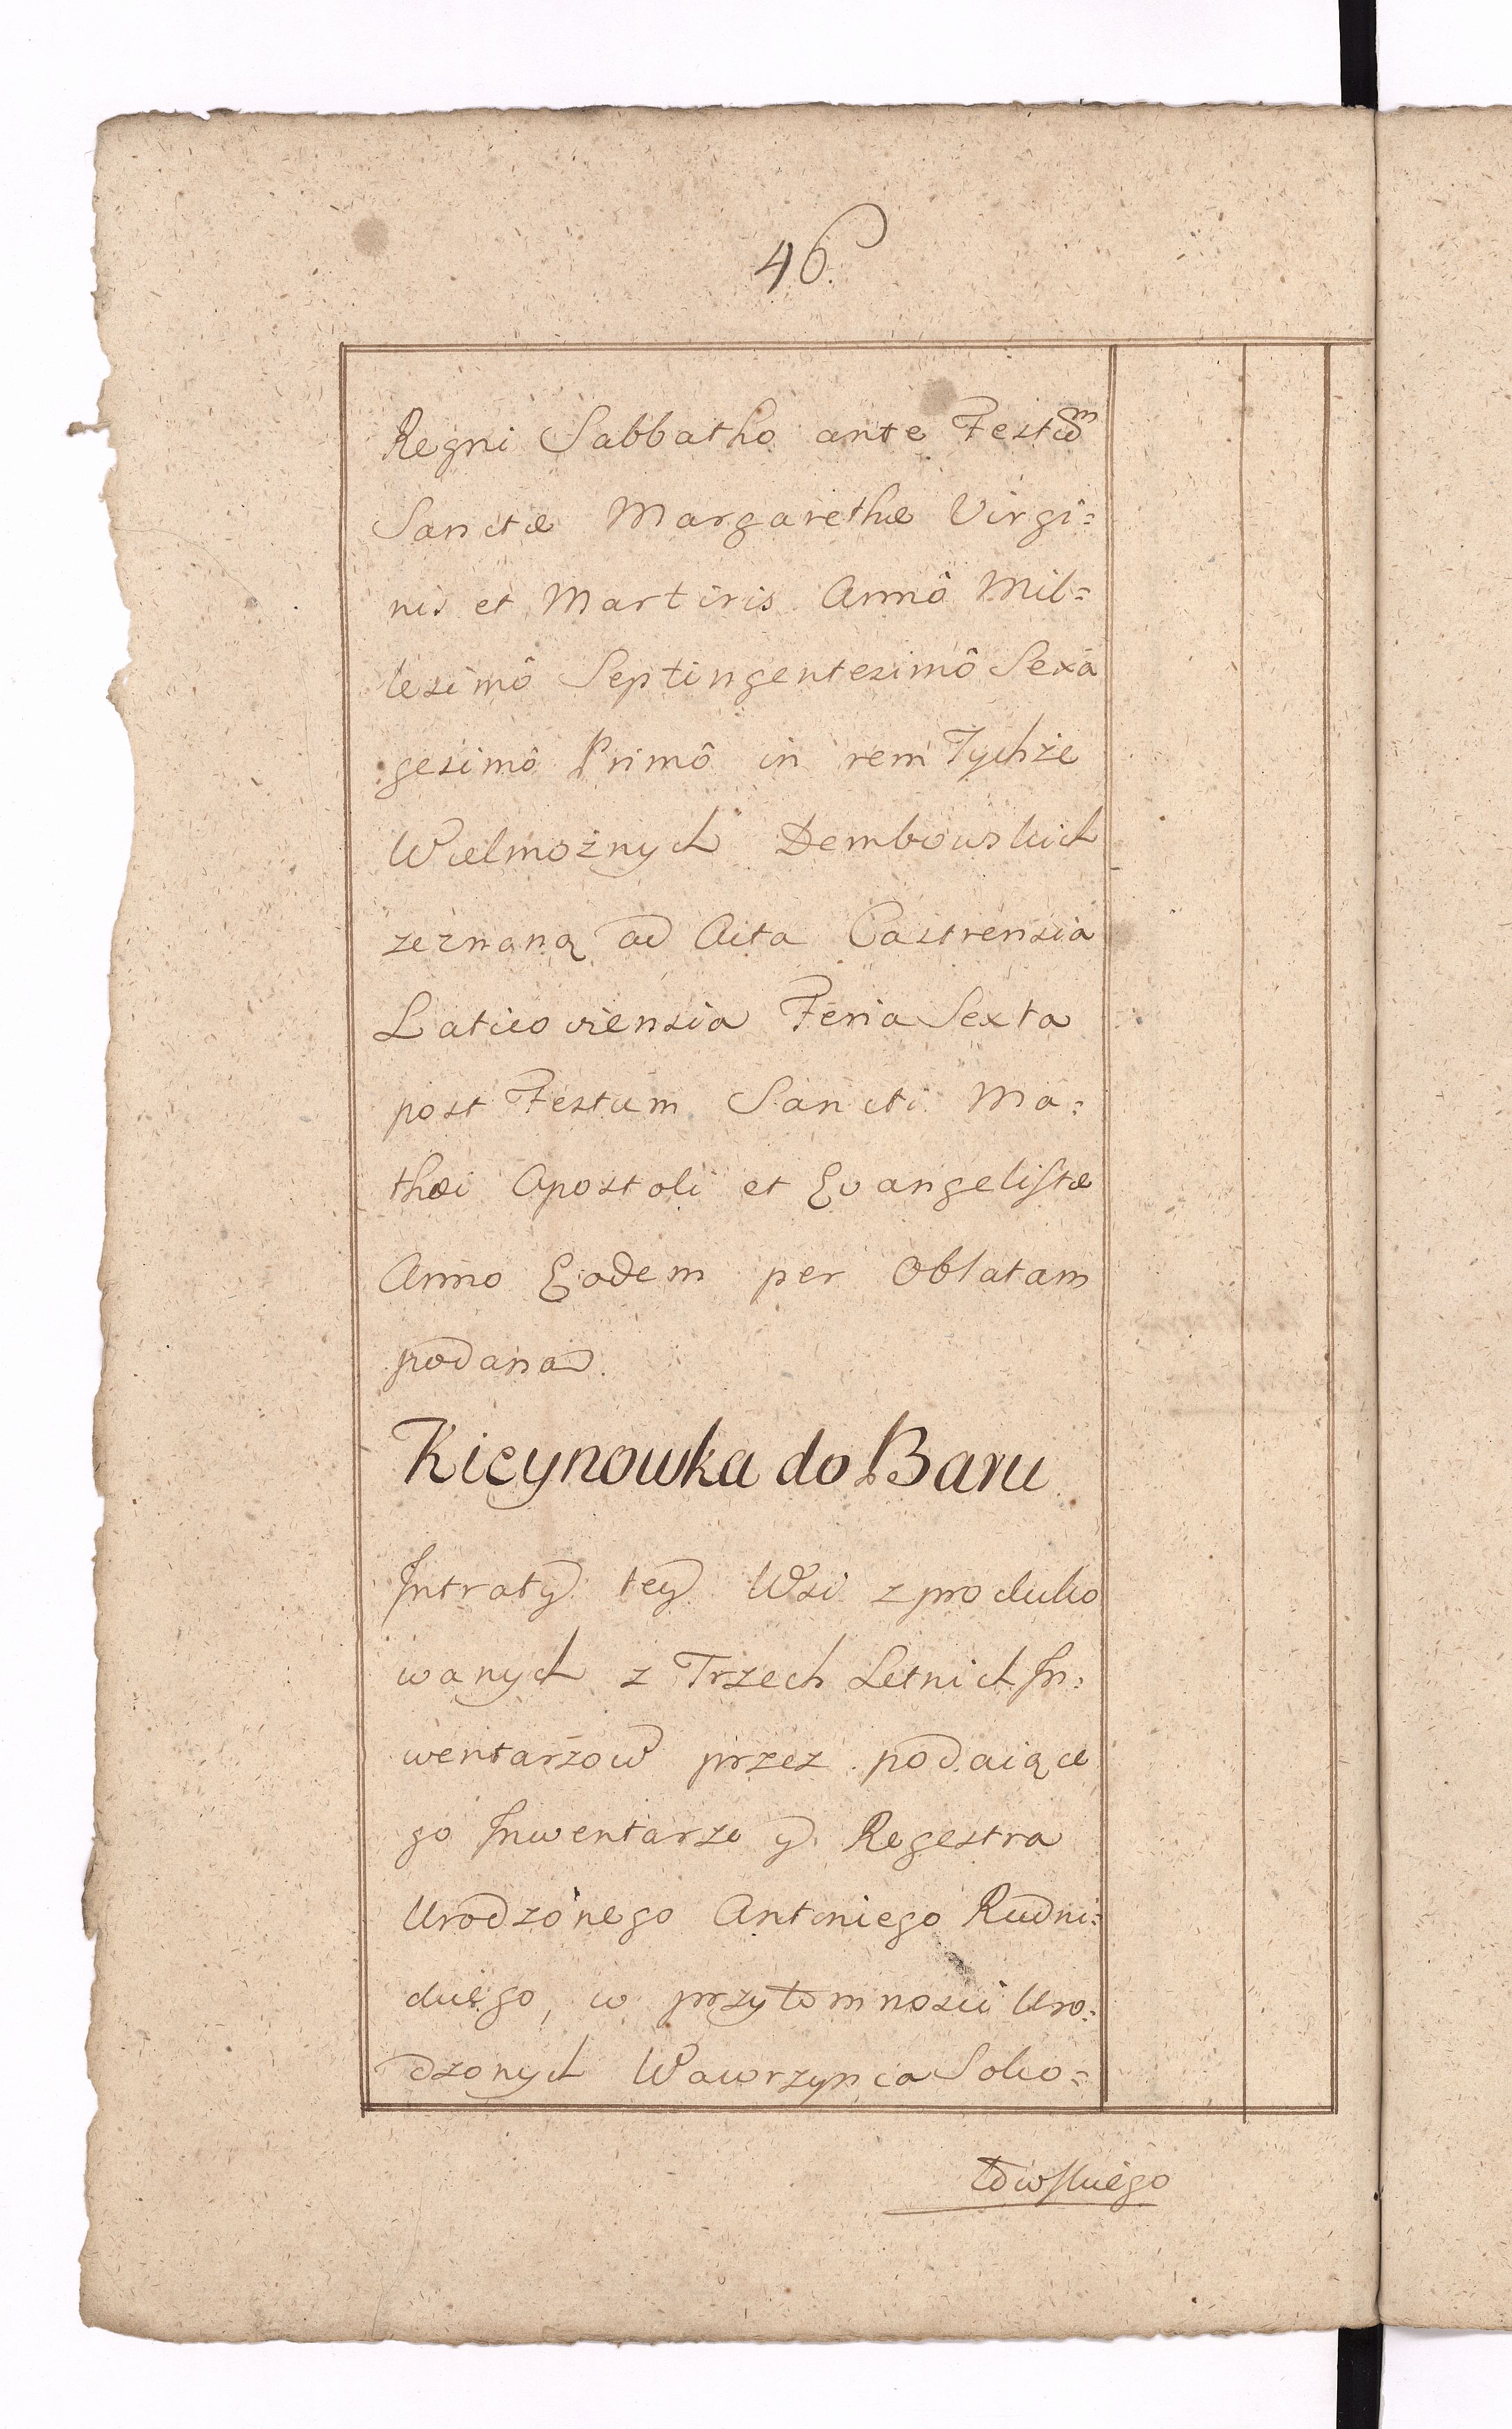 46.
Regni Sabbatho ante Festum
Sanctæ Margarethæ Virgi=
nis et Martiris Annô Mil=
lesimô Septingentesimô Sexa
gesimô Primô in rem Tychże
Wielmożnych Dembowskich
zeznaną ad Acta Castrensia
Laticoviensia Feria Sexta
post Festum Sancti Ma=
thæi Apostoli et Evangelistæ
Anno Eodem per Oblatam
podana.
Kicynowka do Baru
Intraty tey Wsi z produko
wanych z Trzech Letnich In=
wentarzow przez podaiące
go Inwentarze y Regestra
Urodzonego Antoniego Rudni=
ckiego, w przytomnosci Uro=
dzonych Wawrzynca Soko=
łowskiego